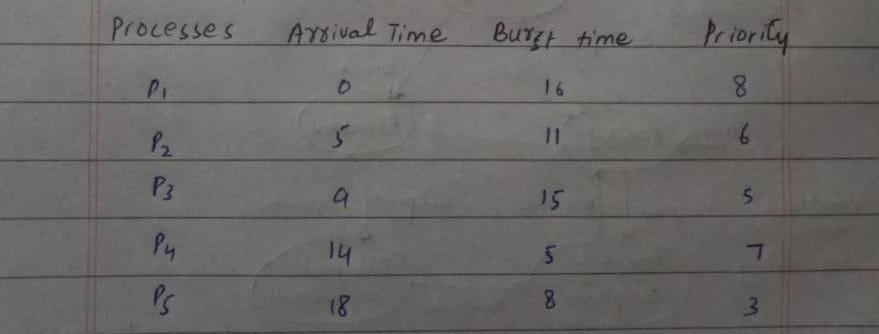 Processes Arrival Time Burst time Priority
P1 0 16 8
P2 5 11 6
P3 9 15 5
P4 14 5 7
P5 18 8 3